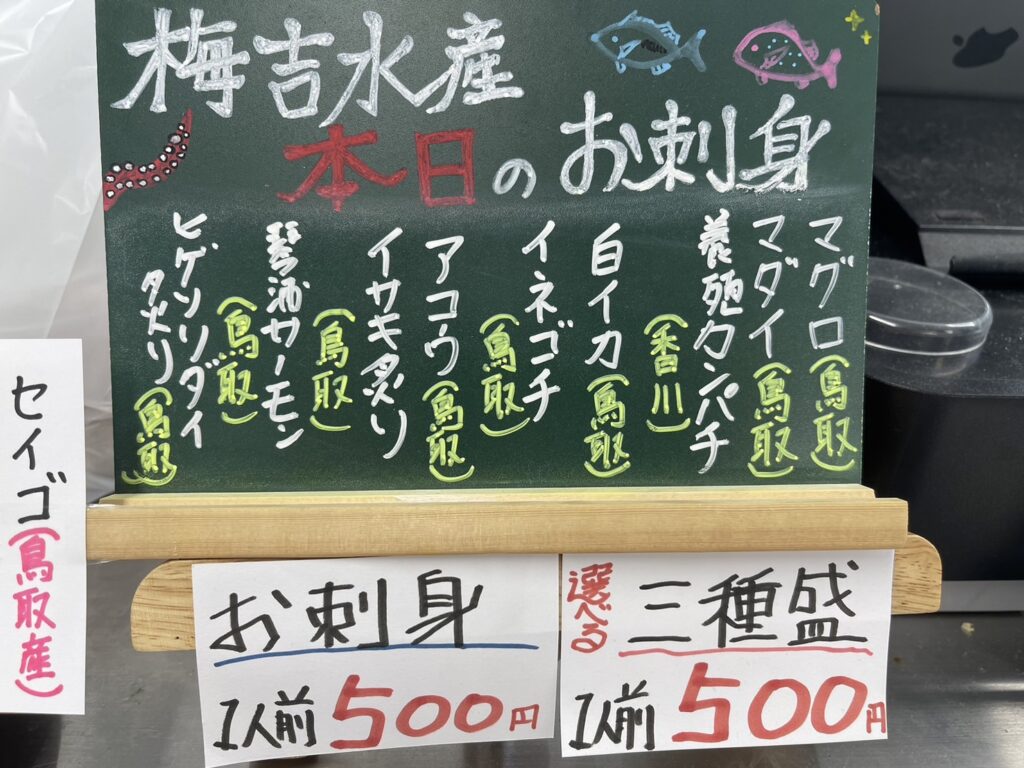 梅吉水産
本日のお刺身
マグロ(鳥取)
マダイ(鳥取)
養殖カンパチ
(香川)
白イカ(鳥取)
イネゴチ
(鳥取)
アコウ(鳥取)
イサキ炙り
(鳥取)
琴浦サーモン
(鳥取)
ヒゲソリダイ
炙り(鳥取)
セイゴ(鳥取産)
お刺身
1人前500円
選べる三種盛
1人前500円